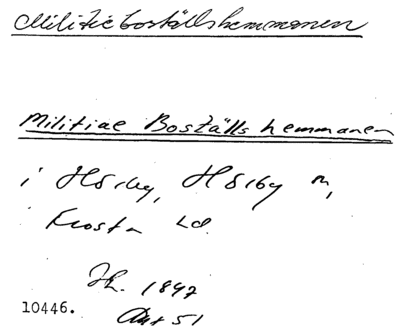 Militieboställshemmanen
Militiae Boställs hemmanen
i Hörby, Hörby sn,
Frosta hd.
1847
10446.
51